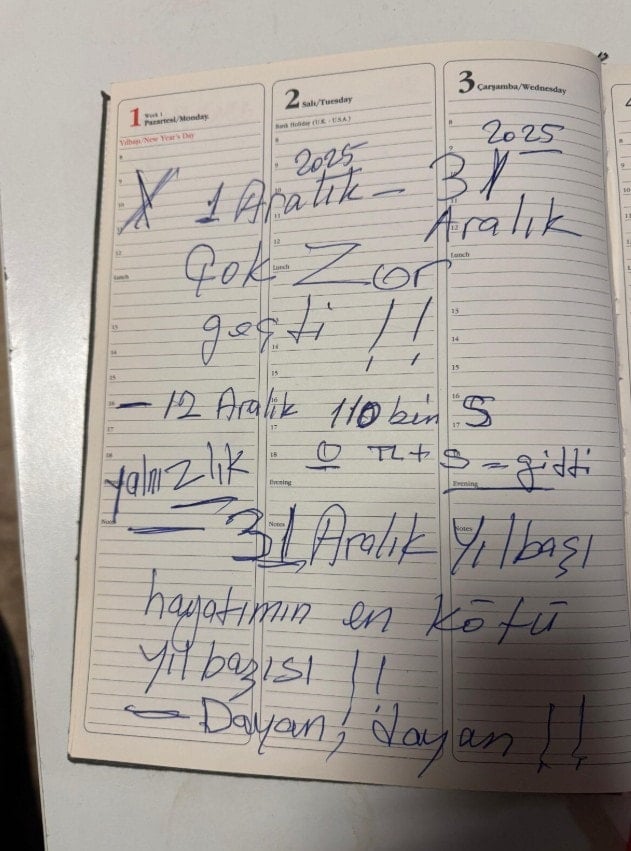 1 Week 1 Pazartesi/Monday
Yılbaşı/New Year's Day
2 Salı/Tuesday
Bank Holiday (U.K. - U.S.A.)
3 Çarşamba/Wednesday
2025 2025
X 1 Aralık - 31
Aralık
Çok Zor
geçti !!
- 12 Aralık 110 bin S
0 TL + S = gitti
yalnızlık
31 Aralık Yılbaşı
hayatımın en kötü
yılbaşısı !!
- Dayan, dayan !!
8
9
10
11
12
Lunch
13
14
15
16
17
18
Evening
Notes